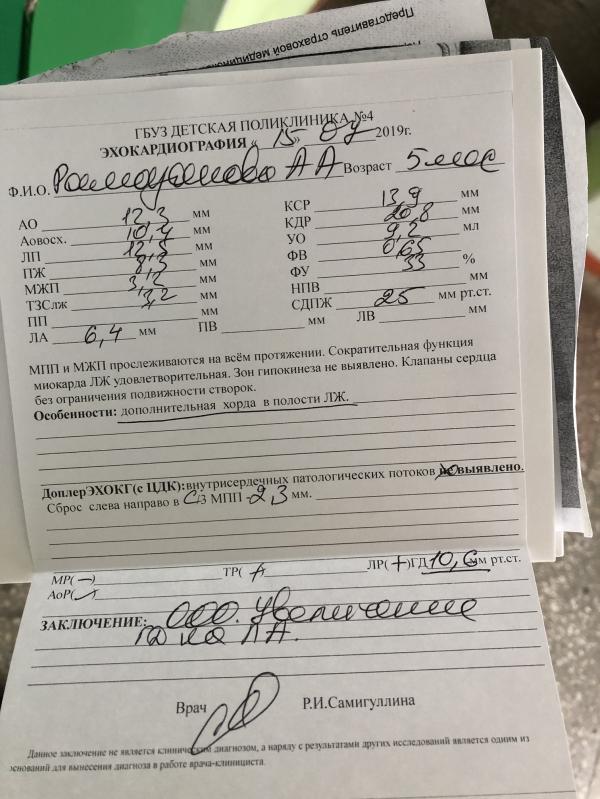 Представитель страховой медицинской
ГБУЗ ДЕТСКАЯ ПОЛИКЛИНИКА №4
ЭХОКАРДИОГРАФИЯ « 15 » 04 2019г.
Ф.И.О. А А Возраст 5 мес
АО 12,3 мм
Аовосх. 10,4 мм
ЛП 12,5 мм
ПЖ 8,3 мм
МЖП 3,2 мм
ТЗСлж 3,2 мм
ПП мм
ЛА 6,4 мм ПВ мм
КСР 13,9 мм
КДР 20,8 мм
УО 9,2 мл
ФВ 0,65
ФУ 33 %
НПВ мм
СДПЖ 25 мм рт.ст.
ЛВ мм
МПП и МЖП прослеживаются на всём протяжении. Сократительная функция
миокарда ЛЖ удовлетворительная. Зон гипокинеза не выявлено. Клапаны сердца
без ограничения подвижности створок.
Особенности: дополнительная хорда в полости ЛЖ.
ДоплерЭХОКГ(с ЦДК):внутрисердечных патологических потоков не выявлено.
Сброс слева направо в С/3 МПП -2,3 мм.
МР(–) ТР( + ЛР(+)ГД 10,6 мм рт.ст.
АоР(–)
ЗАКЛЮЧЕНИЕ: ООО. Увеличение
ГД на ЛА.
Врач Р.И.Самигуллина
Данное заключение не является клиническим диагнозом, а наряду с результатами других исследований является одним из
оснований для вынесения диагноза в работе врача-клинициста.